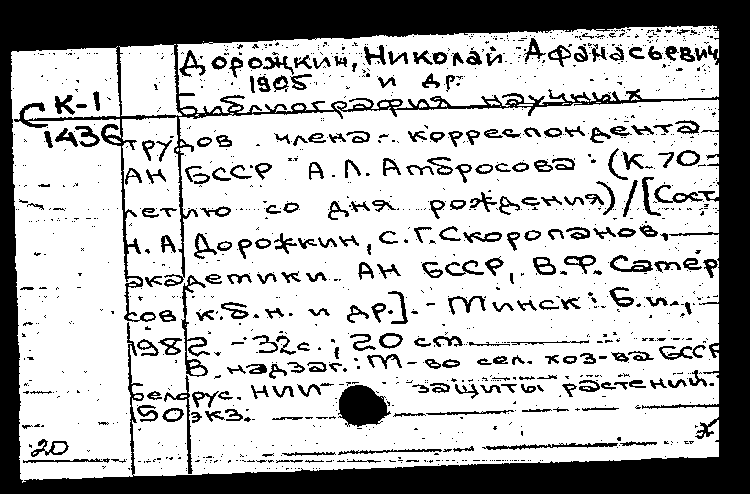 Дорожкин, Николай Афанасьевич,
1905 и др.
С К-1
1436
Библиография научных
трудов члена-корреспондента
АН БССР А.Л. Амбросова: (К 70-
летию со дня рождения)/[Сост.
Н.А. Дорожкин, С.Г. Скоропанов,
академики АН БССР, В.Ф. Самер
сов к.б.н. и др.]. - Минск: Б.и.,
1982. - 32с.; 20 см
В надзаг.: М-во сел. хоз-ва БССР
Белорус. НИИ защиты растений.
150экз.
20